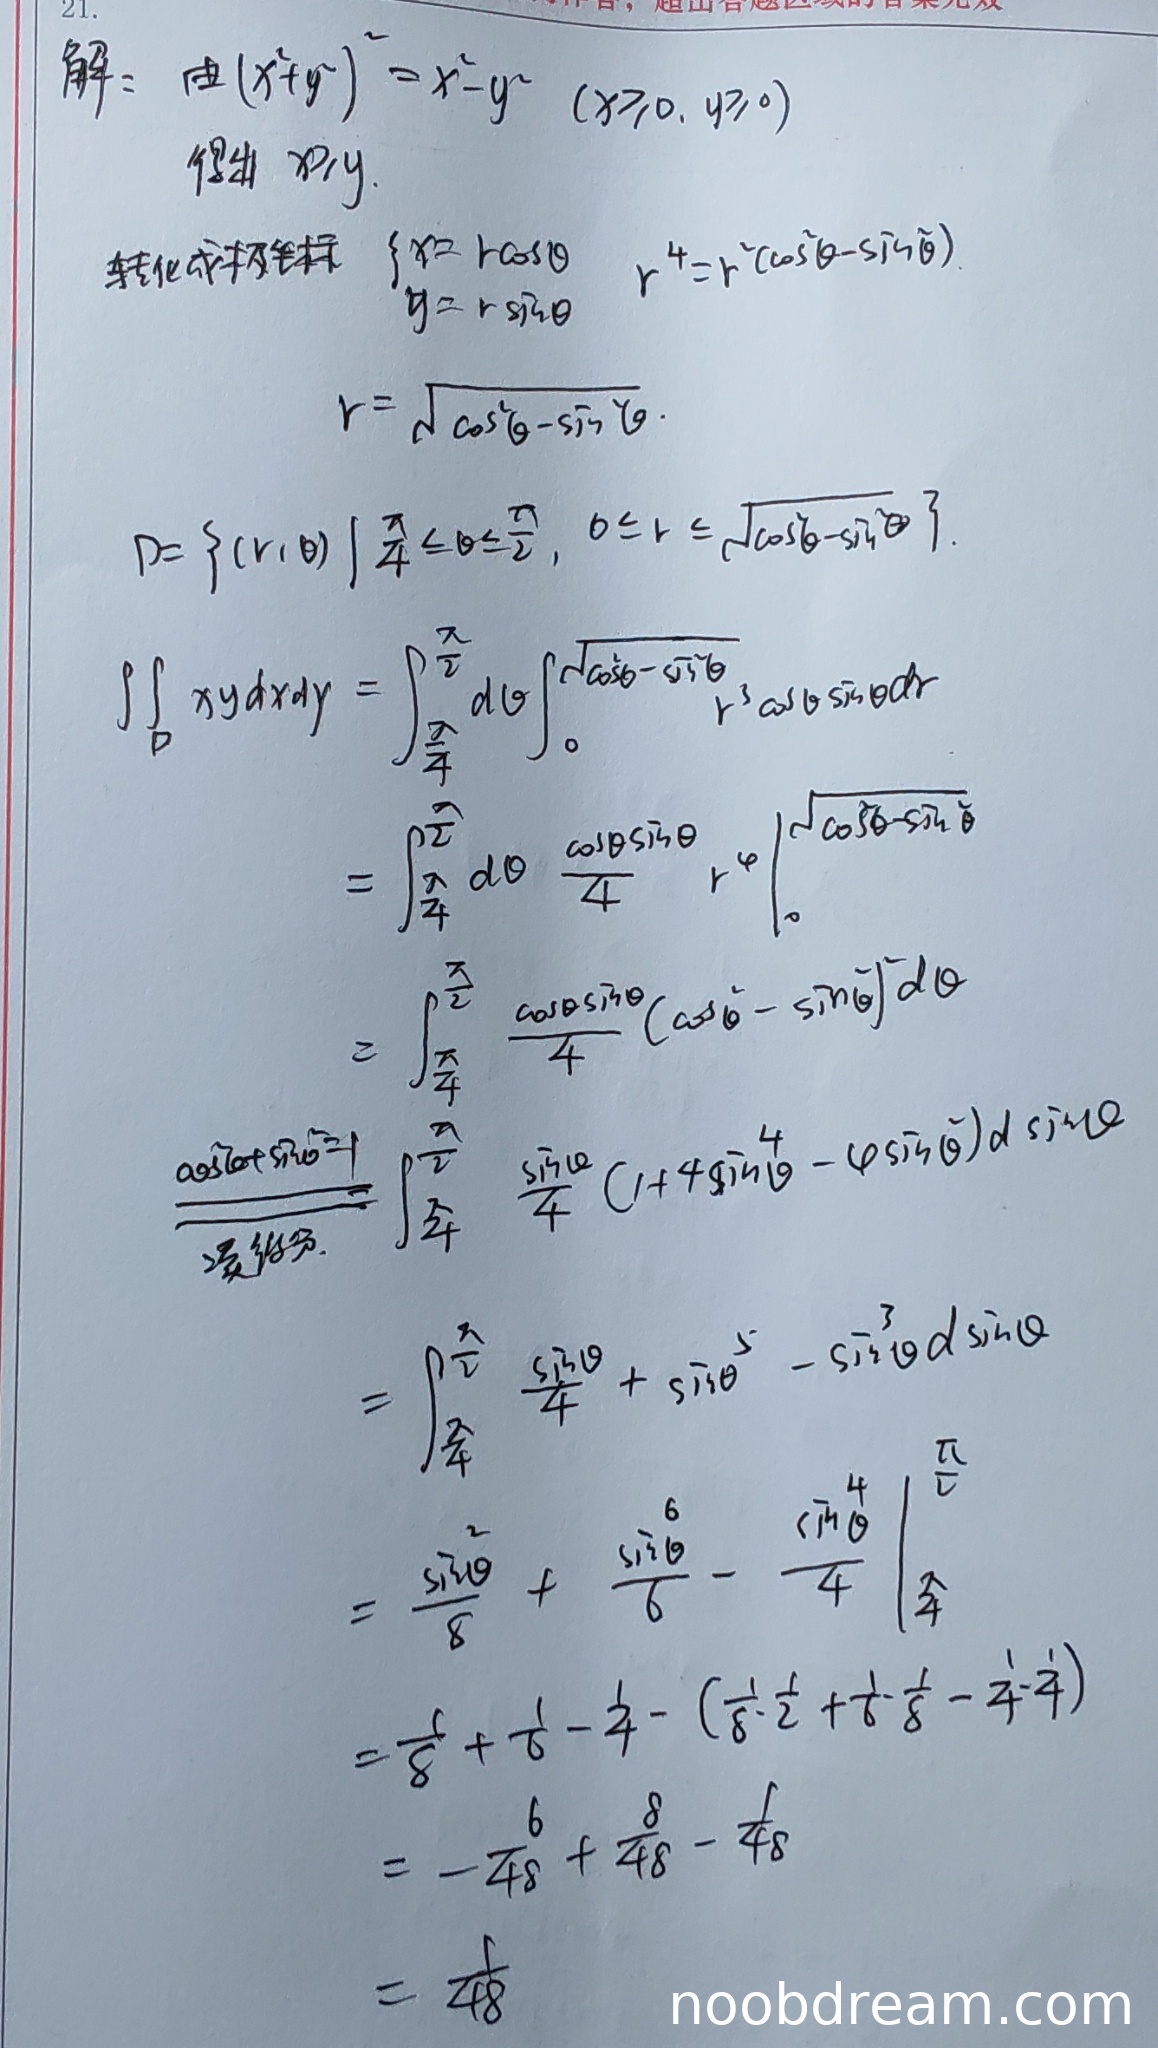 21.
超出答题区域的答案无效
解: 由(x²+y²)²=x²-y² (x≥0, y≥0)
得出 x≥y.
转化成极坐标 { x=rcosθ r⁴=r²(cos²θ-sin²θ).
y=rsinθ
r=√(cos²θ-sin²θ).
D={(r,θ)| π/4≤θ≤π/2, 0≤r≤√(cos²θ-sin²θ)}.
∬_D xydxdy = ∫_{π/4}^{π/2} dθ ∫_0^{√(cos²θ-sin²θ)} r³cosθsinθdr
= ∫_{π/4}^{π/2} dθ cosθsinθ/4 r⁴ |_0^{√(cos²θ-sin²θ)}
= ∫_{π/4}^{π/2} cosθsinθ/4 (cos²θ-sin²θ)² dθ
cos²θ+sin²θ=1 ∫_{π/4}^{π/2} sinθ/4 (1+4sin⁴θ-4sin²θ) d sinθ
凑微分.
= ∫_{π/4}^{π/2} sinθ/4 + sinθ⁵ - sin³θ d sinθ
= sin²θ/8 + sin⁶θ/6 - sin⁴θ/4 |_{π/4}^{π/2}
= 1/8 + 1/6 - 1/4 - (1/8·1/2 + 1/6·1/8 - 1/4·1/4)
= -6/48 + 8/48 - 1/48
= 1/48
noobdream.com